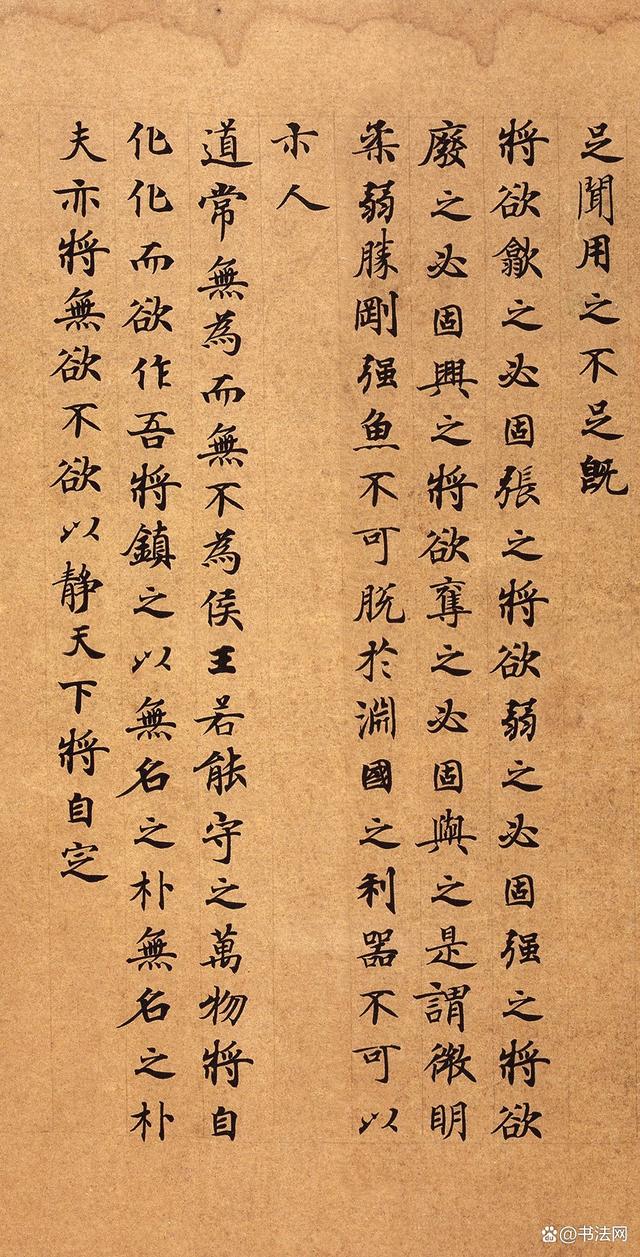 足聞用之不足旣
將欲歙之必固張之將欲弱之必固强之將欲
廢之必固興之將欲奪之必固與之是謂微明
柔弱勝剛强魚不可脱於淵國之利器不可以
示人
道常無為而無不為侯王若能守之萬物將自
化化而欲作吾將鎮之以無名之朴無名之朴
夫亦將無欲不欲以静天下將自定
@书法网